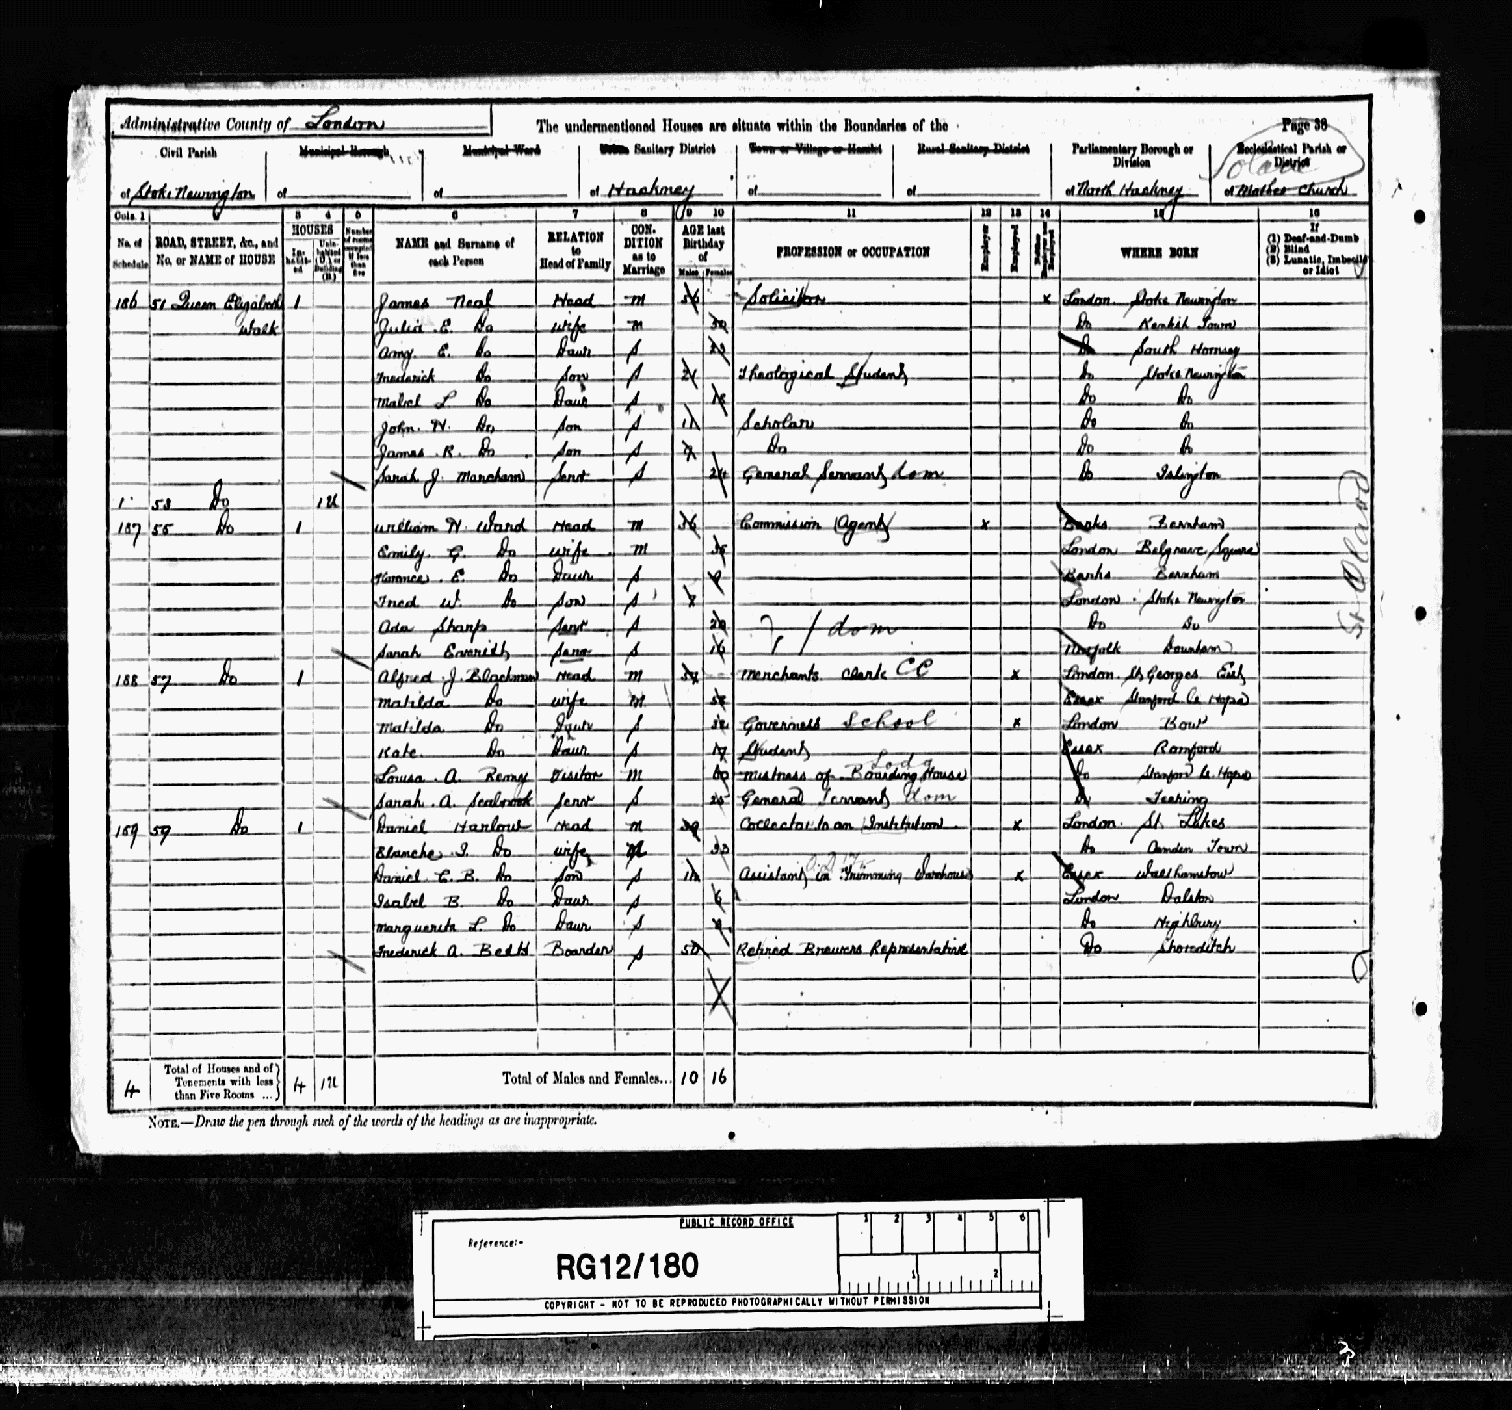 Administrative County of London
The undermentioned Houses are situate within the Boundaries of the
Page 38
Civil Parish
Municipal Borough
Municipal Ward
Urban Sanitary District
Town or Village or Hamlet
Rural Sanitary District
Parliamentary Borough or Division
Ecclesiastical Parish or District
of Stoke Newington
of
of
of Hackney
of
of
of North Hackney
of Mother Church
Cols. 1 2 3 4 5 6 7 8 9 10 11 12 13 14 15 16
No. of Schedule
ROAD, STREET, &c., and No. or NAME of HOUSE
HOUSES
Inhabited
Uninhabited (U.) or Building (B.)
Number of rooms occupied if less than five
NAME and Surname of each Person
RELATION to Head of Family
CONDITION as to Marriage
AGE last Birthday of
Males
Females
PROFESSION or OCCUPATION
Employer
Employed
Neither Employer nor Employed
WHERE BORN
If
(1) Deaf-and-Dumb
(2) Blind
(3) Lunatic, Imbecile or Idiot
186 51 Queen Elizabeth 1 James Neal Head M 56 Solicitor x London Stoke Newington
Walk Julia E. Do Wife M 50 Do Kentish Town
Amy E. Do Daur S 23 Do South Hornsey
Frederick Do Son S 21 Theological Student Do Stoke Newington
Mabel L. Do Daur S Do Do
John N. Do Son S 11 Scholar Do Do
James R. Do Son S Do Do Do
Sarah J. Marcham Servt S 24 General Servant dom Do Islington
1 53 Do 1U
187 55 Do 1 William H. Ward Head M 36 Commission Agent x Bucks Farnham
Emily G. Do Wife M London Belgrave Square
Florence E. Do Daur S 9 Farnham
Fred W. Do Son S London Stoke Newington
Ada Sharp Servt S 20 dom Do Do
Sarah Everitt Servt S 16 Norfolk Downham
188 57 Do 1 Alfred J. Blackman Head M Merchants Clerk CC x London St Georges East
Matilda Do Wife M Essex Stanford le Hope
Matilda Do Daur S Governess School x London Bow
Kate Do Daur S 17 Student Essex Romford
Louisa A. Remy Visitor M 60 Mistress of Boarding House Do Stanford le Hope
Sarah A. Seabrook Servt S General Servant dom Do Feering
189 59 Do 1 Daniel Harlow Head M 39 Collector to an Institution x London St Lukes
Blanche I. Do Wife M Do Camden Town
Daniel C. B. Do Son S Assistant in Trimming Warehouse x Essex Walthamstow
Isabel B. Do Daur S 6 London Dalston
Marguerite L. Do Daur S Do Highbury
Frederick A. Betts Boarder S 50 Retired Brewers Representative Do Shoreditch
St Olave
4 Total of Houses and of Tenements with less than Five Rooms ... 4 1U Total of Males and Females... 10 16
NOTE.—Draw the pen through such of the words of the headings as are inappropriate.
PUBLIC RECORD OFFICE
1 2 3 4 5 6
Reference:-
RG12/180
1 2
COPYRIGHT - NOT TO BE REPRODUCED PHOTOGRAPHICALLY WITHOUT PERMISSION